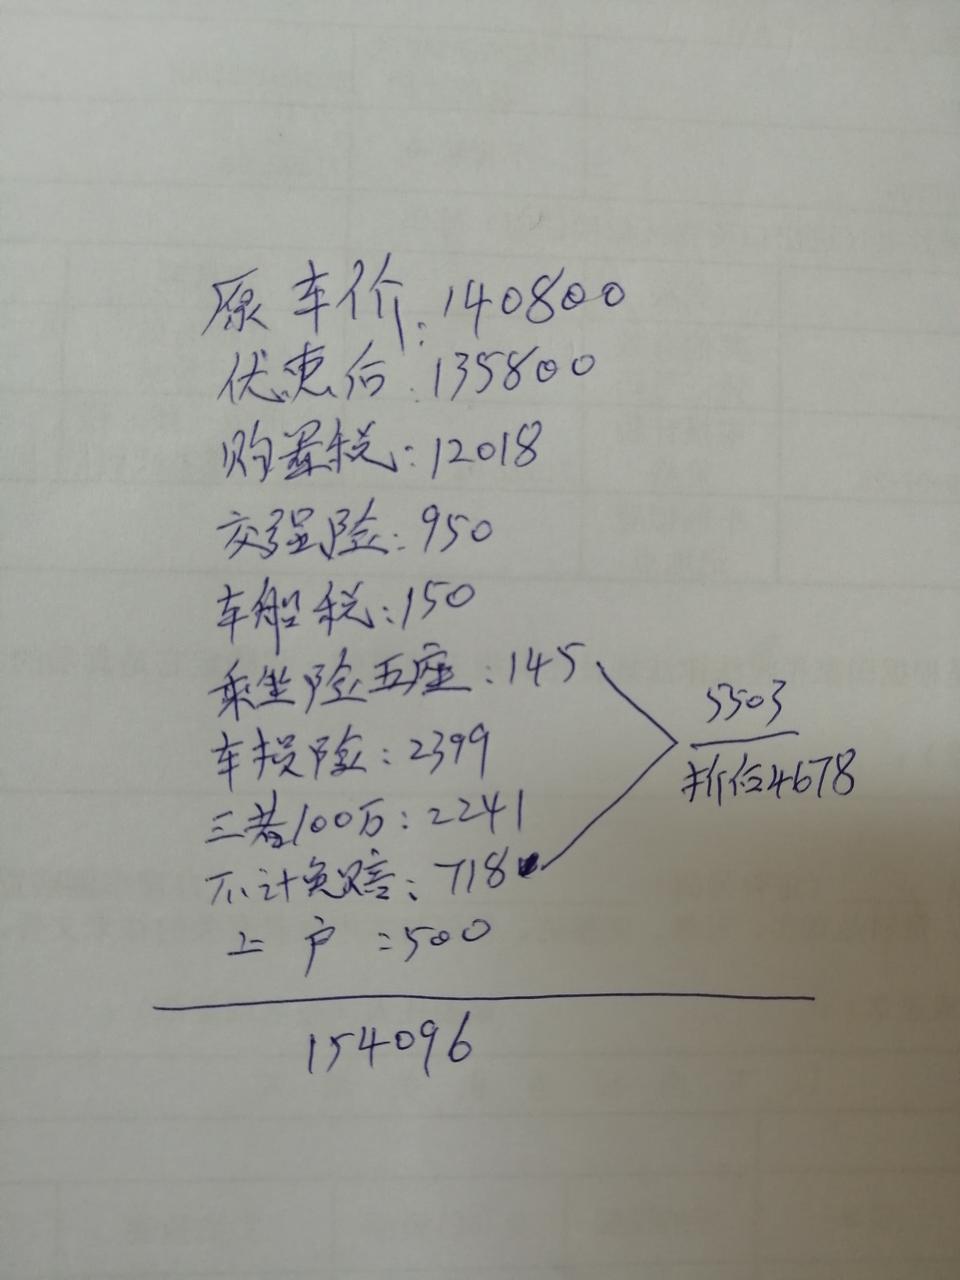 原车价:140800
优惠后:135800
购置税:12018
交强险:950
车船税:150
乘坐险五座:145
车损险:2399
三者100万:2241
不计免赔:718
5503
折后4678
上户:500
154096